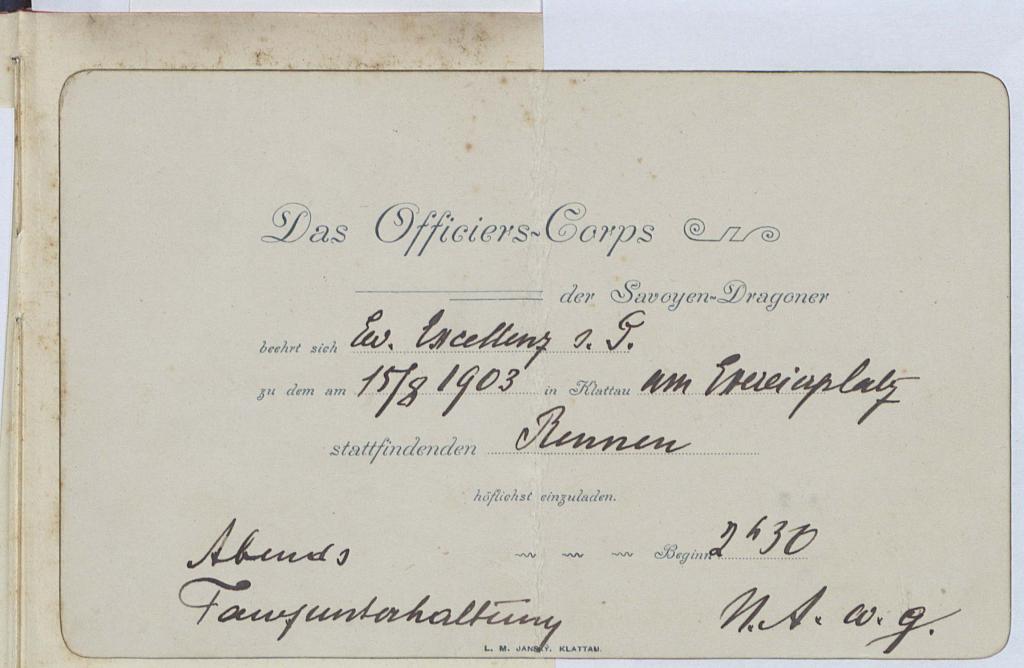 Das Officiers-Corps
der Savoyen-Dragoner
beehrt sich Ew. Excellenz s. T.
zu dem am 15/8 1903 in Klattau am Exercierplatz
stattfindenden Rennen
höflichst einzuladen.
Abends Beginn 2h30
Tanzunterhaltung U.A.w.g.
L. M. JANSKÝ, KLATTAU.